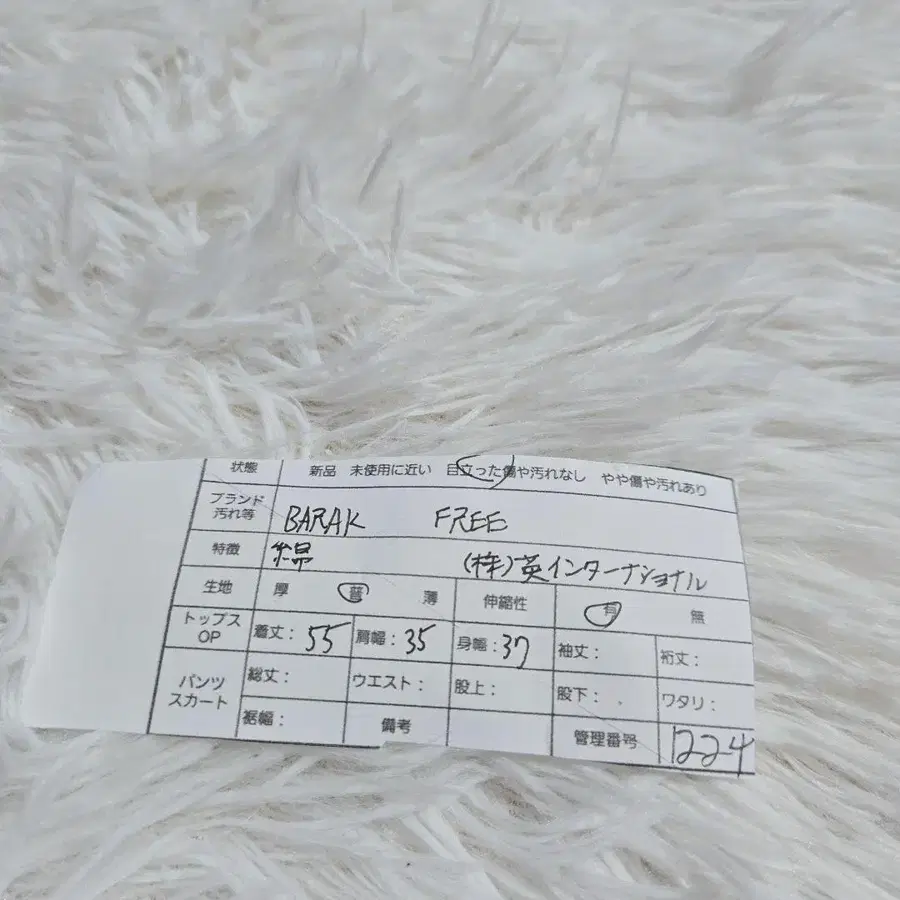 状態 新品 未使用に近い 目立った傷や汚れなし やや傷や汚れあり
ブランド
汚れ等 BARAK FREE
特徴 綿 (株)英インターナショナル
生地 厚 普 薄 伸縮性 有 無
トップス
OP 着丈: 55 肩幅: 35 身幅: 37 袖丈: 裄丈:
パンツ
スカート 総丈: ウエスト: 股上: 股下: ワタリ:
裾幅: 備考 管理番号 1224